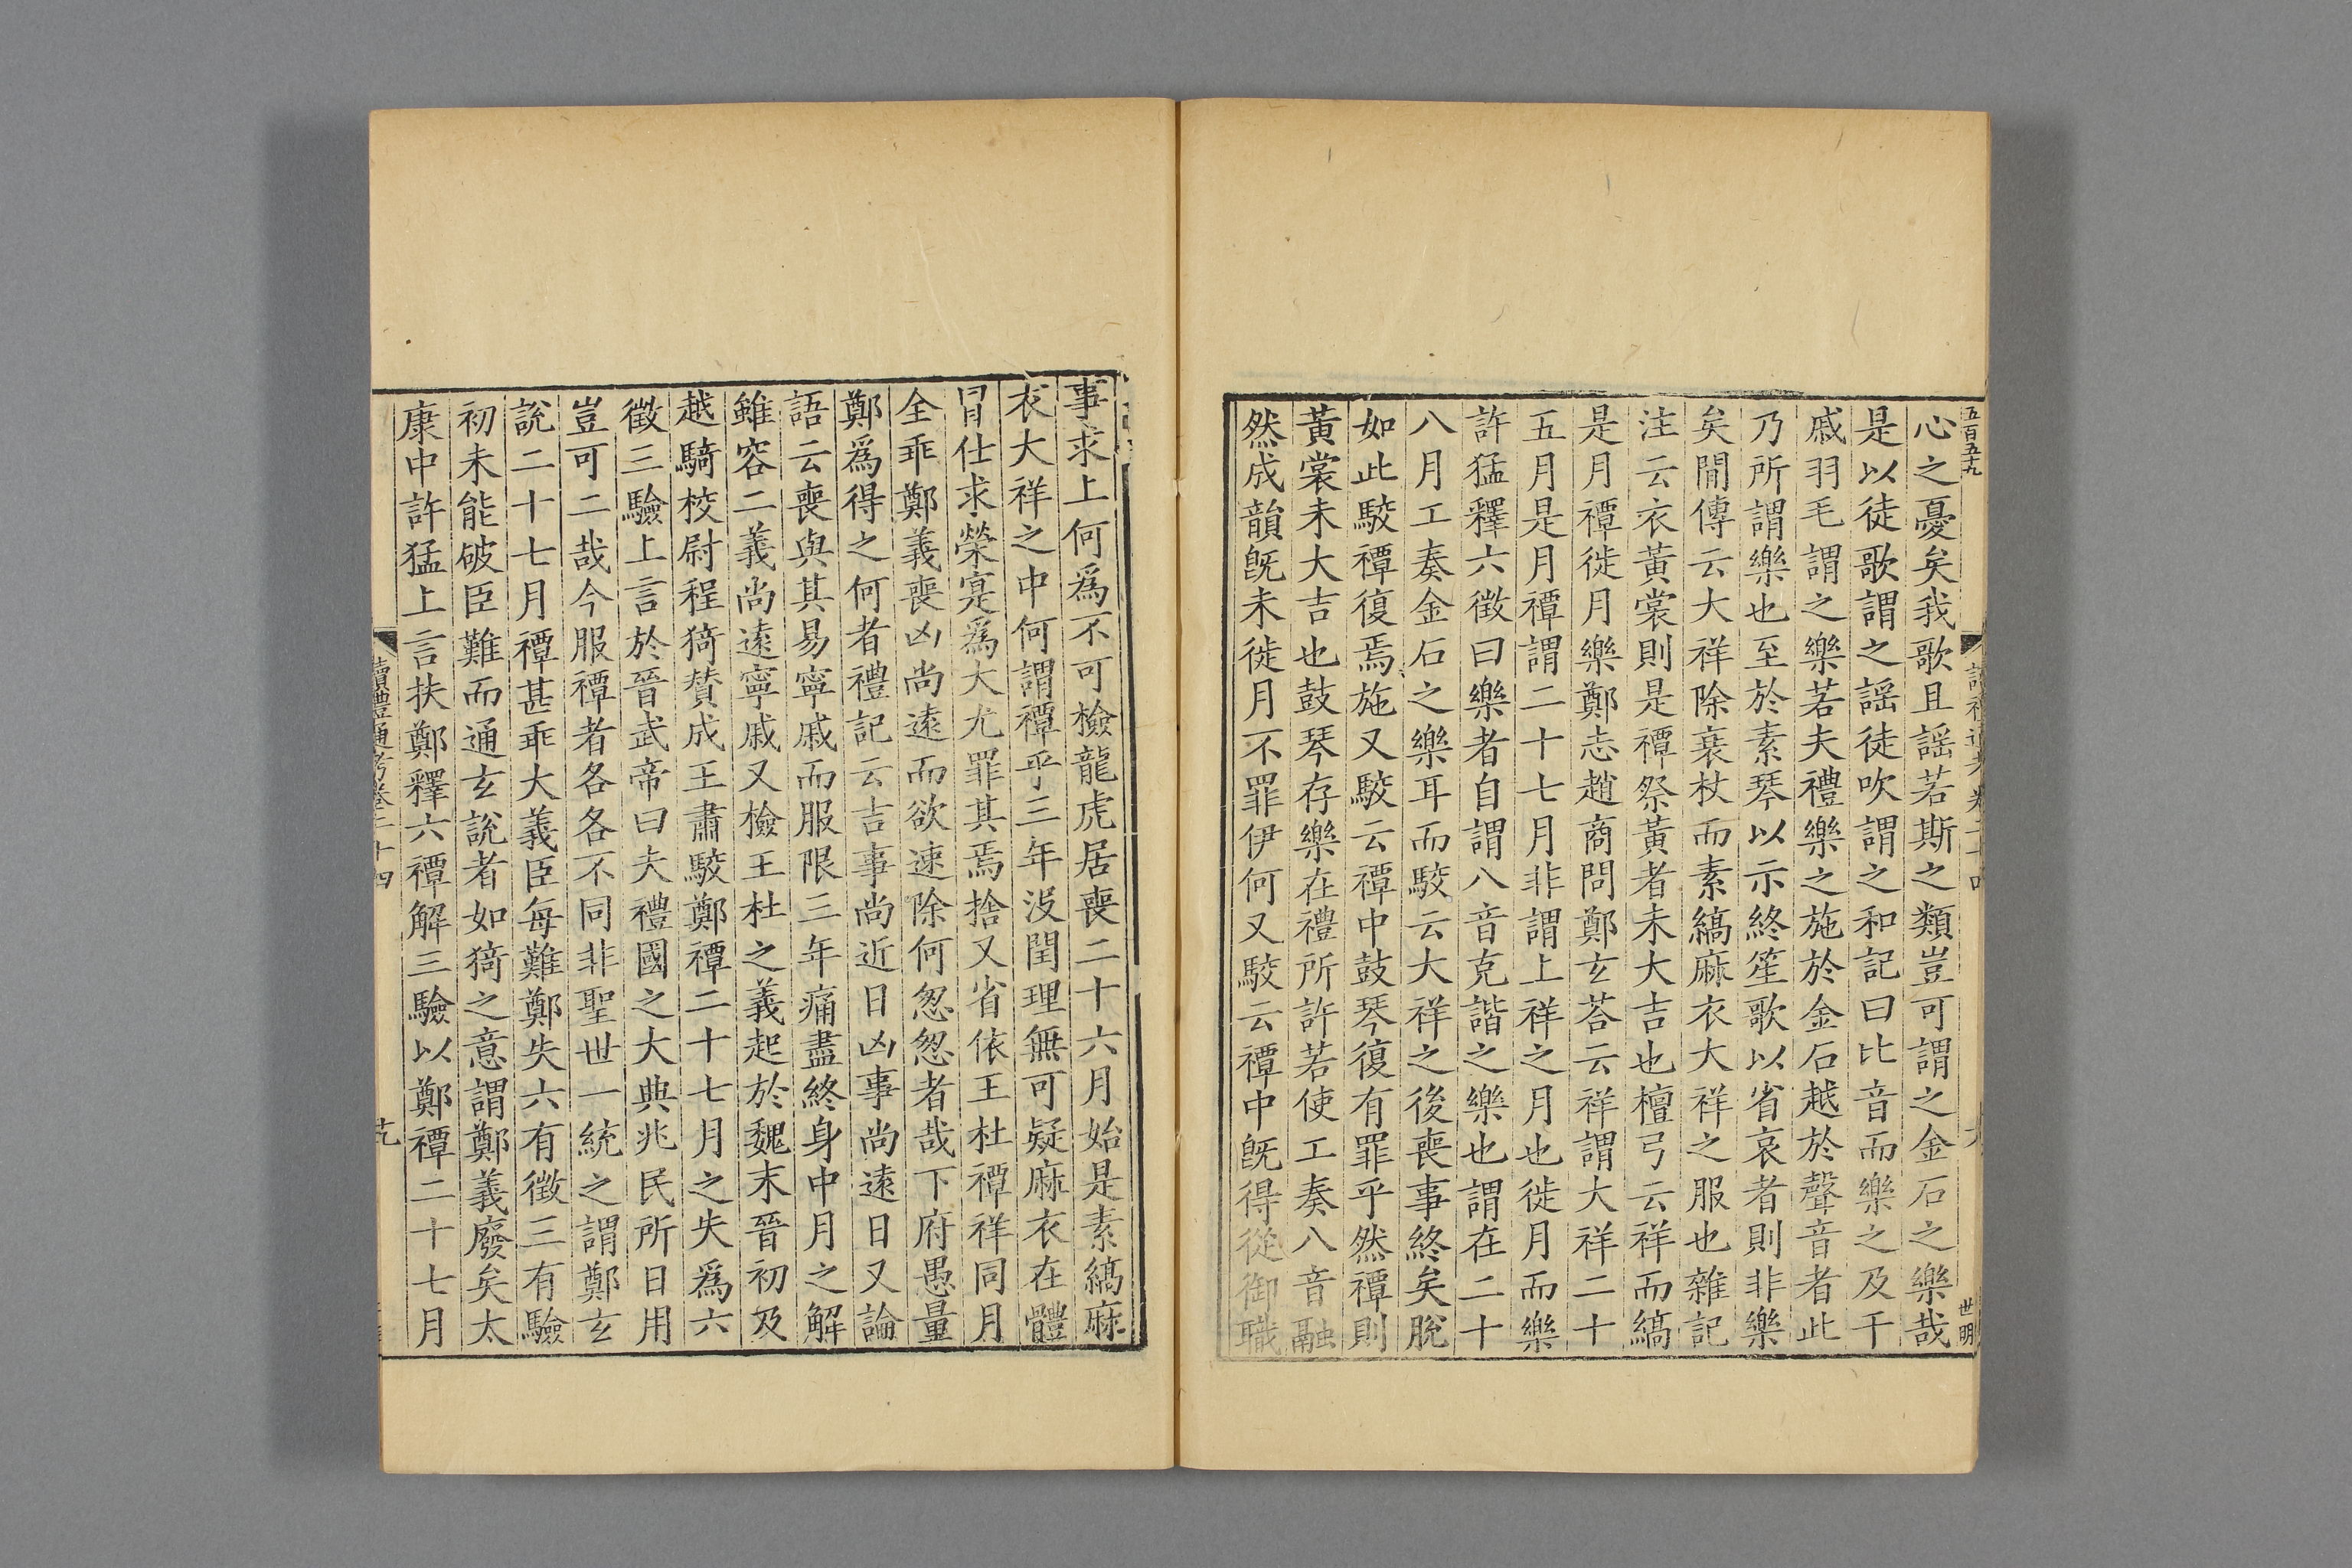 五百五十九
世明
心之憂矣我歌且謡若斯之類豈可謂之金石之樂哉
是以徒歌謂之謡徒吹謂之和記曰比音而樂之及干
戚羽毛謂之樂若夫禮樂之施於金石越於聲音者此
乃所謂樂也至於素琴以示終笙歌以省哀者則非樂
矣閒傳云大祥除衰杖而素縞麻衣大祥之服也雜記
注云衣黃裳則是禫祭黃者未大吉也檀弓云祥而縞
是月禫徙月樂鄭志趙商問鄭玄荅云祥謂大祥二十
五月是月禫謂二十七月非謂上祥之月也徙月而樂
許猛釋六徵曰樂者自謂八音克諧之樂也謂在二十
八月工奏金石之樂耳而駮云大祥之後喪事終矣脫
如此駮禫復焉施又駮云禫中鼓琴復有罪乎然禫則
黃裳未大吉也鼓琴存樂在禮所許若使工奏八音融
然成韻旣未徙月不罪伊何又駮云禫中旣得從御職
事求上何爲不可檢龍虎居喪二十六月始是素縞麻
衣大祥之中何謂禫乎三年沒閏理無可疑麻衣在體
冒仕求榮寔爲大尤罪其焉捨又省依王杜禫祥同月
全乖鄭義喪凶尚遠而欲速除何怱怱者哉下府愚量
鄭爲得之何者禮記云吉事尚近日凶事尚遠日又論
語云喪與其易寧戚而服限三年痛盡終身中月之解
雖容二義尚遠寧戚又檢王杜之義起於魏末晉初及
越騎校尉程猗賛成王肅駮鄭禫二十七月之失爲六
徵三驗上言於晉武帝曰夫禮國之大典兆民所日用
豈可二哉今服禫者各各不同非聖世一統之謂鄭玄
說二十七月禫甚乖大義臣每難鄭失六有徵三有驗
初未能破臣難而通玄說者如猗之意謂鄭義廢矣太
康中許猛上言扶鄭釋六禫解三驗以鄭禫二十七月
讀禮通考卷二十四